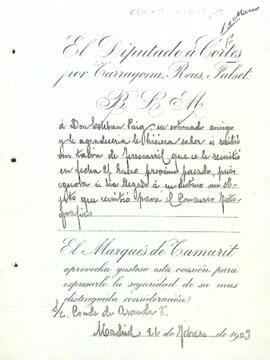 1º Marzo
El Diputado á Cortes
por Tarragona, Reus, Falset
B. L. M.
á Don Esteban Puig su estimado amigo
y le agradecería le hiciera saber si recibió
un talón de ferrocarril que se le remitió
en fecha de Enero próximo pasado, pues
ignora si ha llegado á su destino un ob-
jeto que remitió para el Concurso foto-
gráfico
El Marqués de Tamarit
aprovecha gustoso esta ocasión para
expresarle la seguridad de su mas
distinguida consideración.
S/c. Conde de Aranda 5.
Madrid 26 de Febrero de 1903